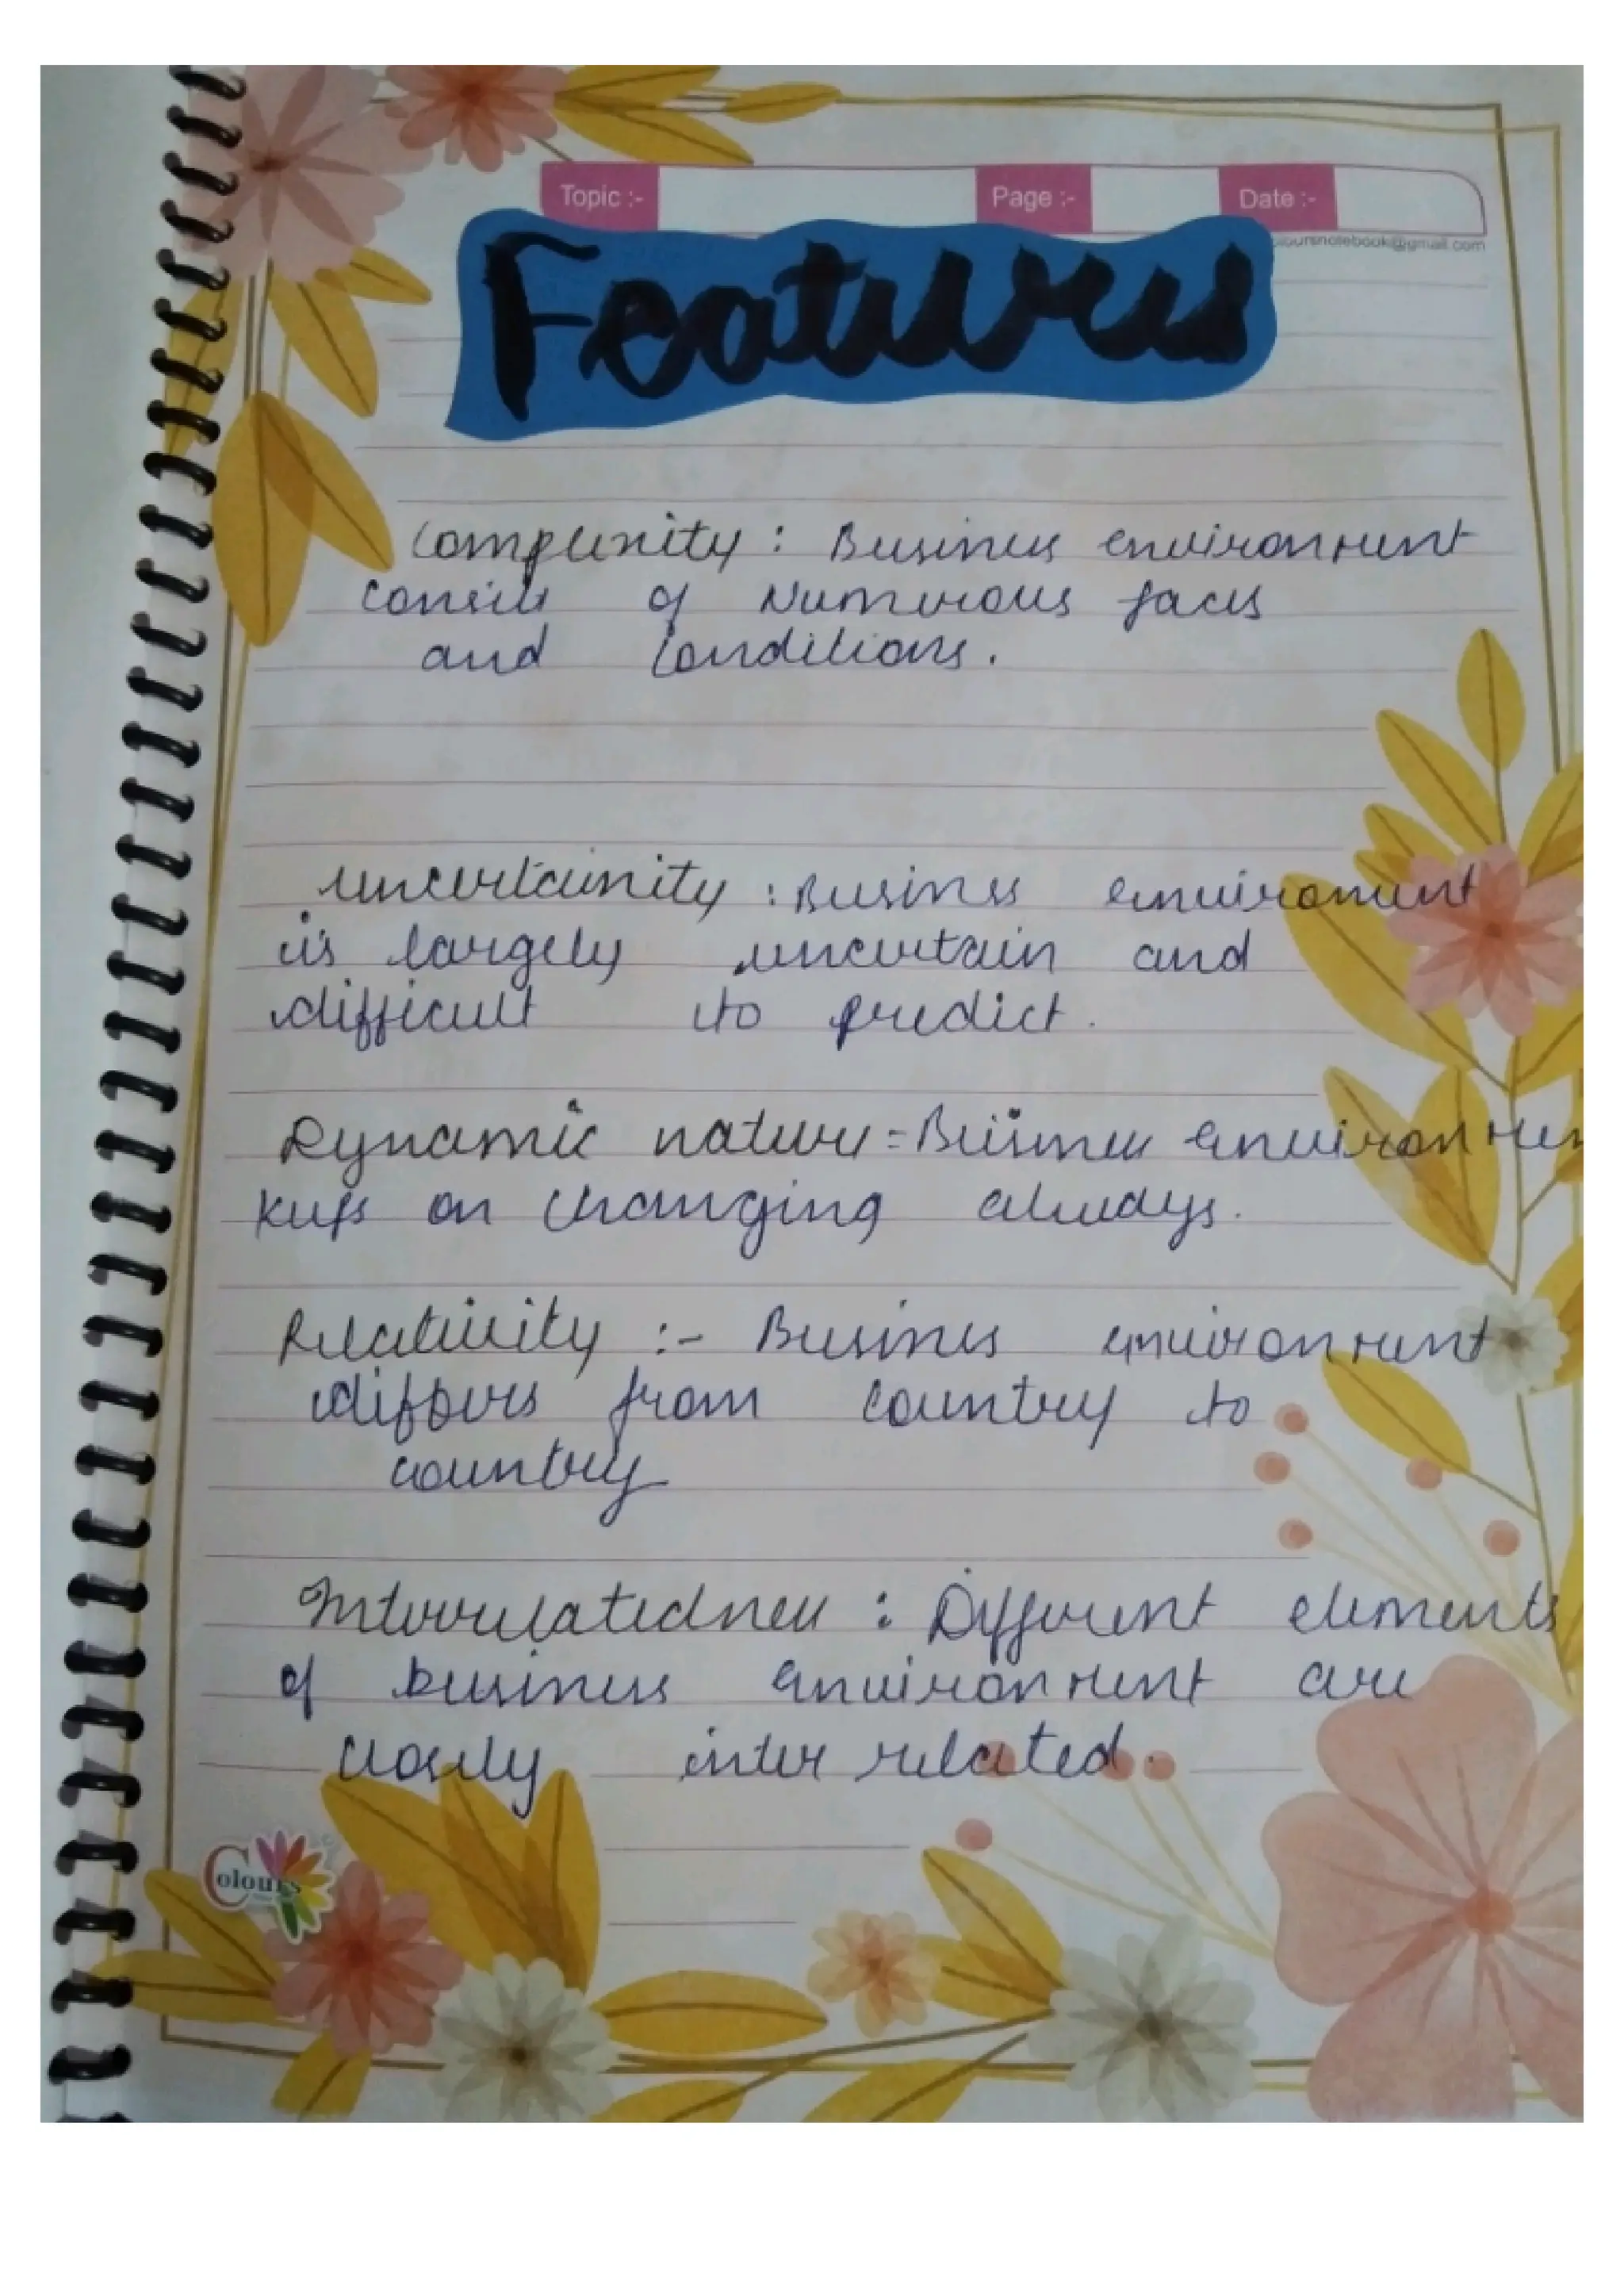 Topic :- Page :- Date :-
coloursnotebook@gmail.com
Features
Complexity : Business environment
consists of Numerous faces
and conditions.
uncertainity : Business enviroment
is largely uncertain and
difficult to predict.
Dynamic nature = Business environmen
keeps on changing always.
Relativity :- Business environment
differs from country to
country
Interrelatedness : Different elements
of business environment are
closely inter related.
Colours